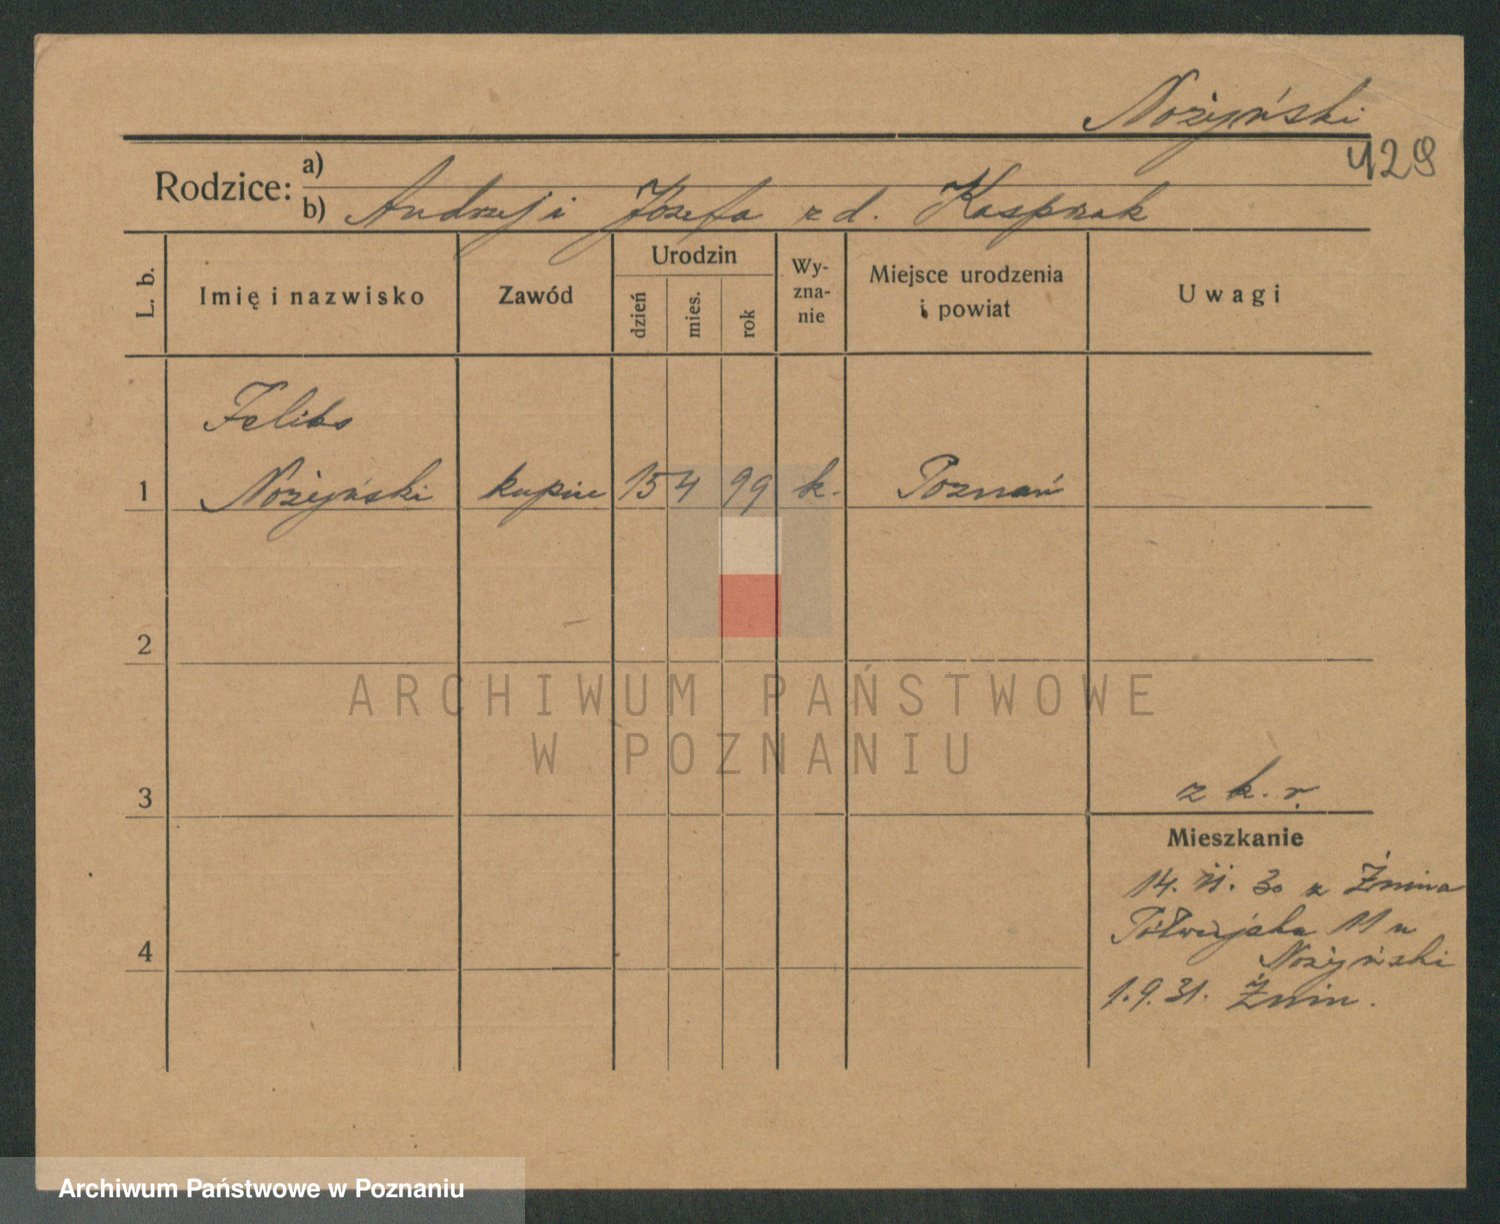 Nożyński
429
Rodzice:
a)
b) Andrzej i Józefa z d. Kasprzak
L. b.
Imię i nazwisko
Zawód
Urodzin
dzień
mies.
rok
Wy-
zna-
nie
Miejsce urodzenia
i powiat
Uwagi
Feliks
1 Nożyński kupiec 15 4 99 k. Poznań
2
ARCHIWUM PAŃSTWOWE
W POZNANIU
z k. r.
3
Mieszkanie
14. VI. 30 z Żnina
Półwiejska 11 u
Nożyński
4
1.9.31. Żnin.
Archiwum Państwowe w Poznaniu